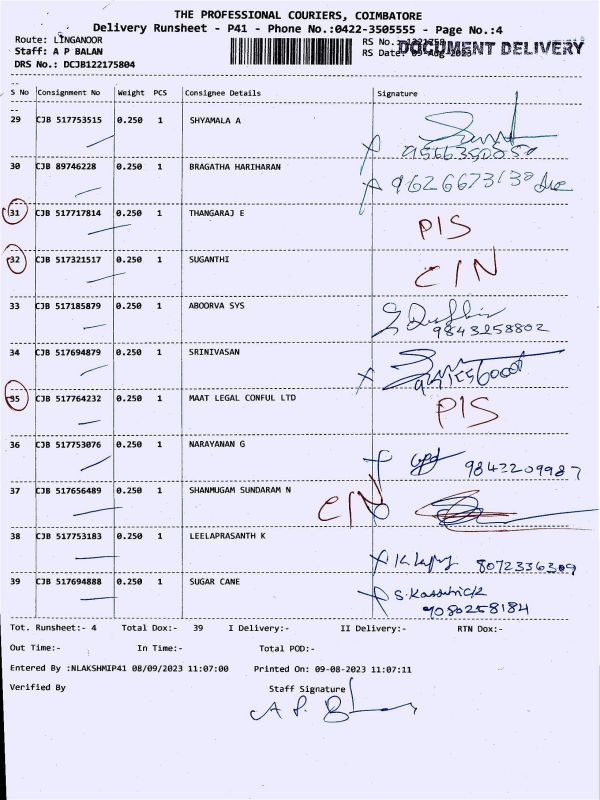 THE PROFESSIONAL COURIERS, COIMBATORE
Delivery Runsheet - P41 - Phone No.:0422-3505555 - Page No.:4
Route: LINGANOOR
Staff: A P BALAN
DRS No.: DCJB122175804
RS No.
RS Date: 09-Aug-2023
DOCUMENT DELIVERY
S No Consignment No Weight PCS Consignee Details Signature
29 CJB 517753515 0.250 1 SHYAMALA A
30 CJB 89746228 0.250 1 BRAGATHA HARIHARAN 9626673130
31 CJB 517717814 0.250 1 THANGARAJ E P1S
32 CJB 517321517 0.250 1 SUGANTHI C/N
33 CJB 517185879 0.250 1 ABOORVA SYS 9843258802
34 CJB 517694879 0.250 1 SRINIVASAN
35 CJB 517764232 0.250 1 MAAT LEGAL CONFUL LTD P1S
36 CJB 517753076 0.250 1 NARAYANAN G 9842209987
37 CJB 517656489 0.250 1 SHANMUGAM SUNDARAM N C/N
38 CJB 517753183 0.250 1 LEELAPRASANTH K 8072336309
39 CJB 517694888 0.250 1 SUGAR CANE S. Kasswick
9080258184
Tot. Runsheet:- 4 Total Dox:- 39 I Delivery:- II Delivery:- RTN Dox:-
Out Time:- In Time:- Total POD:-
Entered By :NLAKSHMIP41 08/09/2023 11:07:00 Printed On: 09-08-2023 11:07:11
Verified By Staff Signature